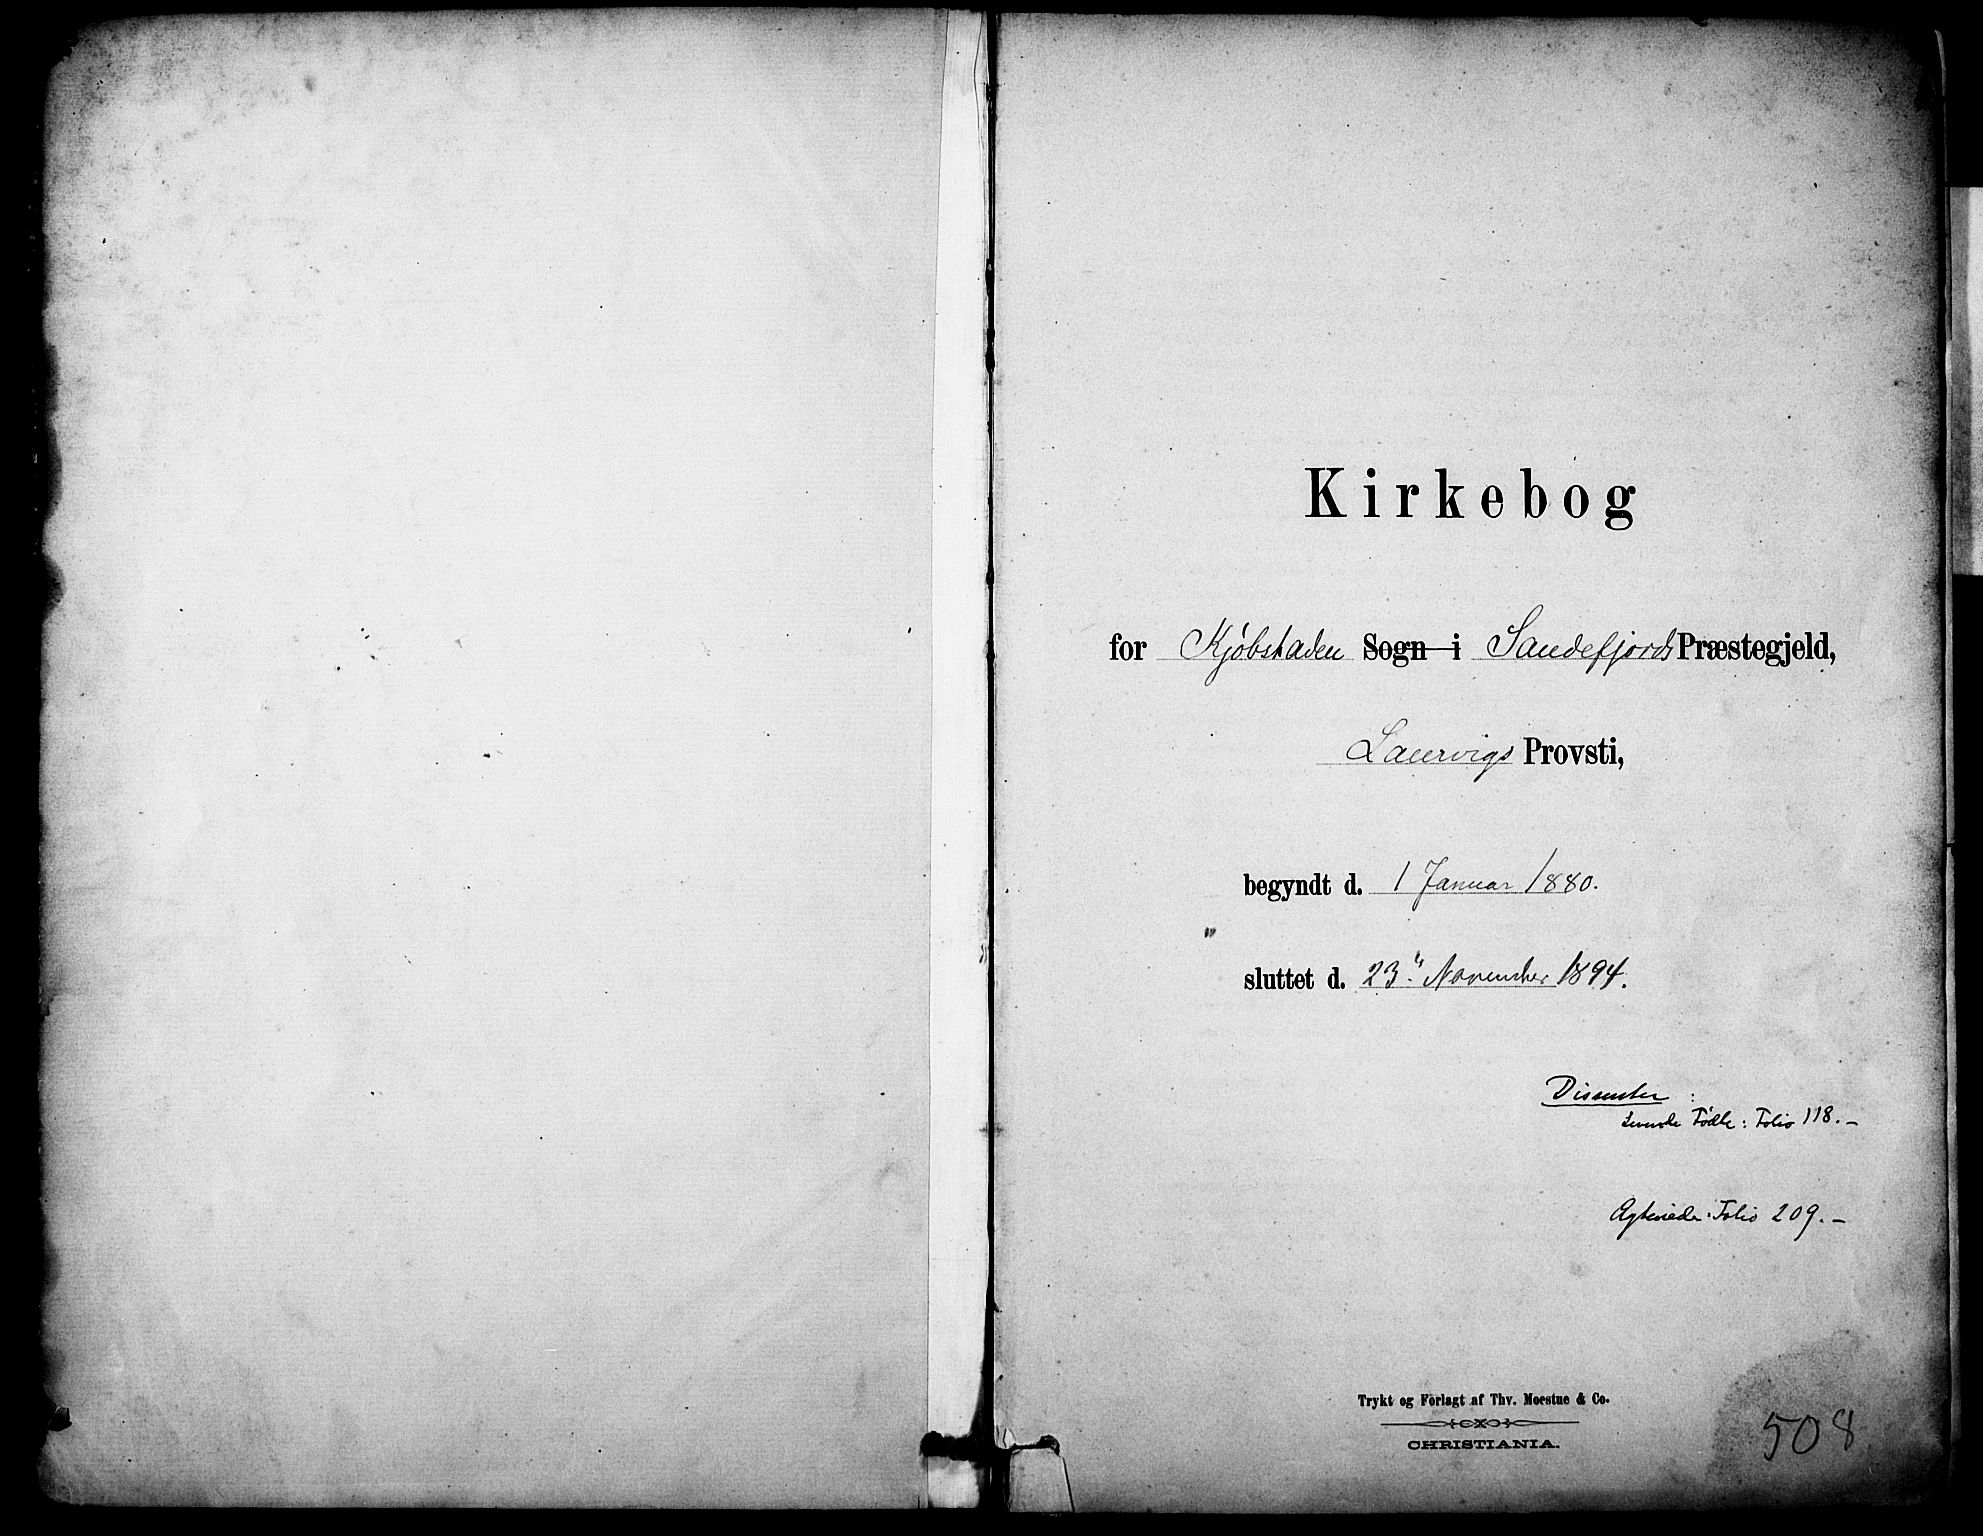 Kirkebog
for Kjøbstaden Sogn i Sandefjords Præstegjeld,
Laurvigs Provsti,
begyndt d. 1 Januar 1880.
"
sluttet d. 23" November 1894.
Dissenter:
Levende Fødte: Folio 118.–
Ægteviede: Folio 209.–
Trykt og Forlagt af Thv. Moestue & Co.
CHRISTIANIA.
508